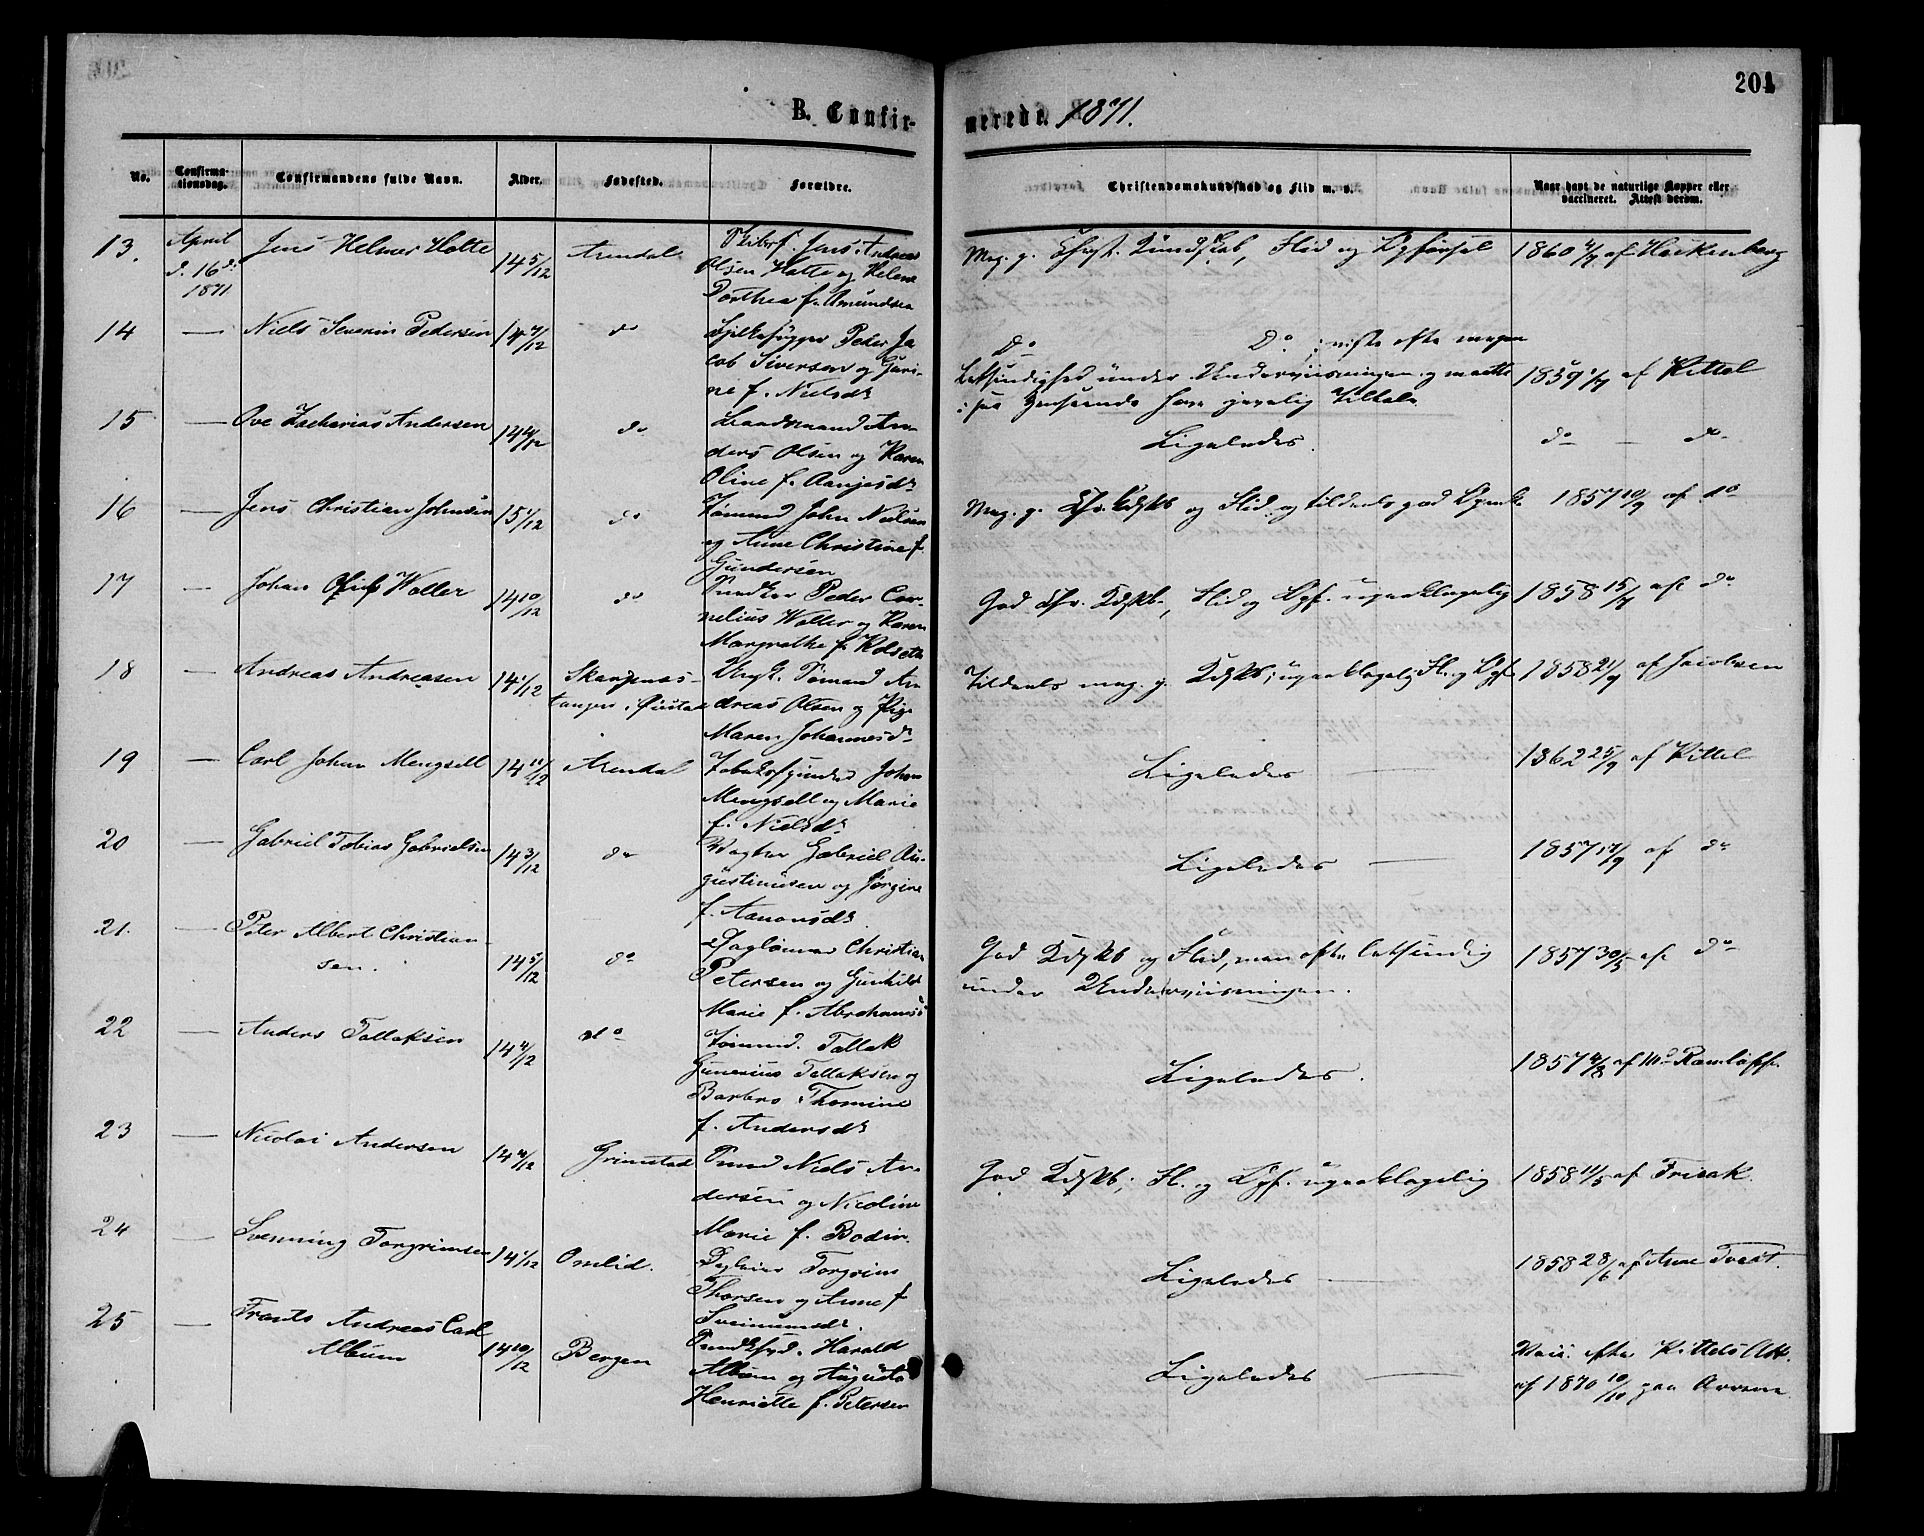 201
B. Confirmerede 1871.
No.
Confirmationsdag.
Confirmandens fulde Navn.
Alder.
Fødested.
Forældre.
Christendomskundskab og Flid m. v.
Naar havt de naturlige Kopper eller vaccineret. Attest derom.
13. April d. 16de 1871 Jens Helmer Holte 14 5/12 Arendal Jens Andreas Olsen Holte og Helene Dorthea f. Amundsen
Meg. g. Christ. Kundskab, Flid og Opførsel 1860 af Hackenberg
14 — Niels Severin Pedersen 14 do Peder Jacob Siversen og f. Nielsdr
Do Do ; viste ofte megen
Letsindighed under Underviisningen og maatte
i saa Henseende have jævnlig Tiltale. 1859 af Kittel
15 — Ove Zacharias Andersen 14 do Anders Olsen og Karen Oline f. Aanjesdr
Ligeledes. do — do
16 — Jens Christian Johnsen 15 1/12 do Tømmd John Nielsen og Anne Christine f. Gundersen
Meg. g. Chr. Kdskb og Flid, og tildeels god 1857 10/9 af do
17 — Johan Woller 14 10/12 do Peder Cornelius Woller og Karen Margrethe f.
God Chr. Kdskb., Flid og Opf. upaaklagelig 1858 af do
18 — Andreas Andreasen 14 1/12 Andreas Olsen og Pige Maren Johannesdr
Tildeels meg. g. Kdskb; upaaklagelig Fl. og Opf. 1858 21/9 af Jacobsen
19 — Carl Johan Mengsell 14 11/12 Arendal Johan Mengsell og Marie f. Nielsdr
Ligeledes — 1862 25/9 af Kittel
20 — Gabriel Tobias Gabrielsen 14 3/12 do Vægter Gabriel Augustinusen og Jørgine f. Aanonsdr
Ligeledes — 1857 17/9 af do
21. — Peter Albert Christiansen. 14 5/12 do Dagleier Christian Petersen og Gunhild Marie f. Abrahams
God Kdskb og Flid, men ofte letsindig
under Underviisningen. 1857 30/5 af do
22 — Anders Tallaksen 14 do Tømmd. Tallak Gunerius Tallaksen og Barbro Thomine f. Andersdr
Ligeledes. 1857 af
23 — Nicolai Andersen 14 Grimstad Niels Andersen og Nicoline Marie f. Bodin.
God Kdskb; Fl. og Opf. upaaklagelig 1858 11/5 af Frisak.
24 — Svenning Torgrimsen 14 1/12 Omlid. Torgrim Thorsen og Anne f.
Ligeledes — 1858 28/6 af Arne Tveit.
25 — Frants Andreas Carl Album 14 10/12 Bergen Harald Album og Augusta Henriette f. Petersen
Ligeledes — Vacc. efter Kittels Att.
af 1870 10/10 paa